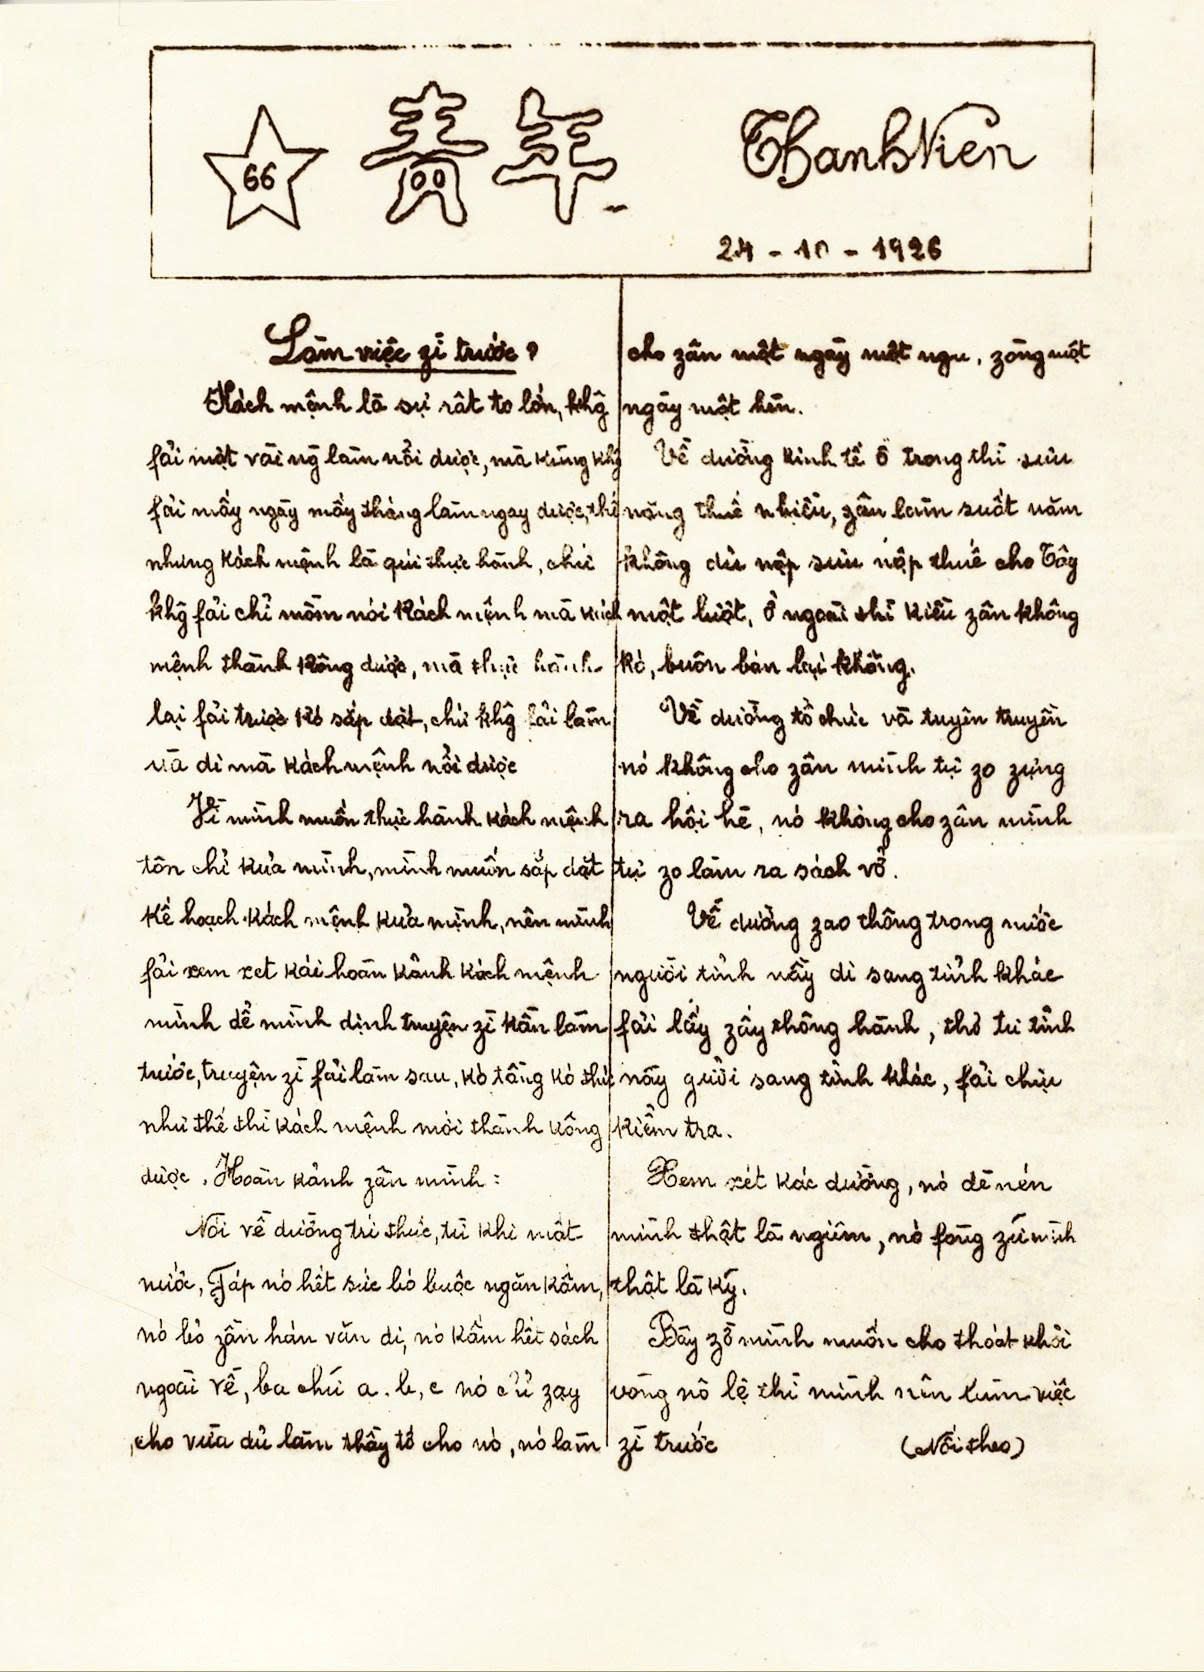 66
青年
Thanh Nien
24 - 10 - 1926
Làm việc zì trước?
Kách mệnh là sự rất to lớn, khg̃
fải một vài ng̃ làm nổi được, mà kũng khg̃
fải mấy ngày mấy tháng làm ngay được, thế
nhưng kách mệnh là quí thực hành, chứ
khg̃ fải chỉ mồm nói kách mệnh mà kách
mệnh thành kông được, mà thực hành
lại fải trước kó sắp đặt, chứ khg̃ fải làm
và đi mà kách mệnh nổi được
Vì mình muốn thực hành kách mệnh
tôn chỉ kủa mình, mình muốn sắp đặt
kế hoạch kách mệnh kủa mình, nên mình
fải xem xét kái hoàn kảnh kách mệnh
mình để mình định truyện zì kần làm
trước, truyện zì fải làm sau, kó tầng kó thứ
như thế thì kách mệnh mới thành kông
được. Hoàn kảnh zân mình:
Nói về đường trí thức, từ khi mất
nước, Fáp nó hết sức bó buộc ngăn kấm,
nó bỏ zần hán văn đi, nó kấm hết sách
ngoài về, ba chữ a. b, c nó cứ zạy
cho vừa đủ làm thầy tớ cho nó, nó làm
cho zân một ngày một ngu, zòng một
ngày một hèn.
Về đường kinh tế ở trong thì sưu
nặng thuế nhiều, zân làm suốt năm
không đủ nộp sưu nộp thuế cho Tây
một lượt, ở ngoài thì kiều zân không
kó, buôn bán lại không.
Về đường tổ chức và tuyên truyền
nó không cho zân mình tự zo zựng
ra hội hè, nó không cho zân mình
tự zo làm ra sách vở.
Về đường zao thông trong nước
người tỉnh nầy đi sang tỉnh khác
fải lấy zấy thông hành, thơ từ tỉnh
nầy gửi sang tỉnh khác, fải chịu
kiểm tra.
Xem xét kác đường, nó đè nén
mình thật là ngiêm, nó fòng zữ mình
thật là kỹ.
Bây zờ mình muốn cho thoát khỏi
vòng nô lệ thì mình nên làm việc
zì trước (Nối theo)